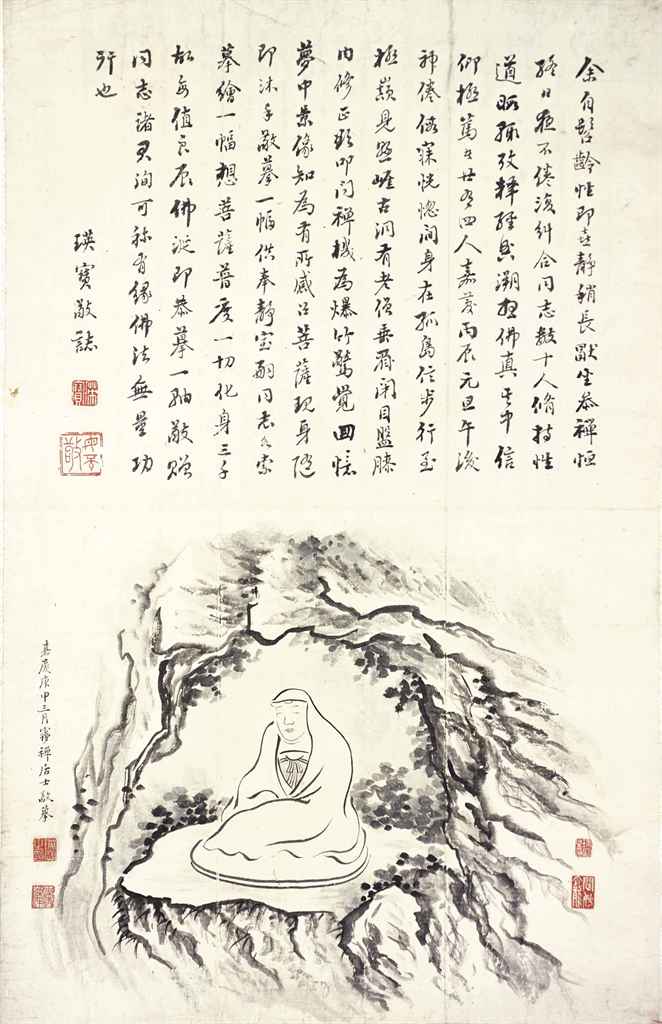 余自髫齡性即喜靜稍長獸坐恭禪恒
終日夜不倦後糾合同志數十人脩持性
道晤孫攷釋經典溯想佛真其中信
仰極篤者廿有四人嘉慶丙辰元旦午後
神倦偃寐恍惚間身在孤島信步行至
極巔見懸崖古洞有老僧垂眉閉目盤膝
內修正欲叩問禪機為爆竹驚覺回憶
夢中景像知為有所感召菩薩現身隨
即沐手敬摹一幅供奉靜室嗣同志各索
摹繪一幅想菩薩普度一切化身三千
故每值良辰佛誕即恭摹一軸敬贈
同志諸君洵可稱有緣佛法無量功
行也
瑛寶敬誌
嘉慶庚申三月 禪居士敬摹